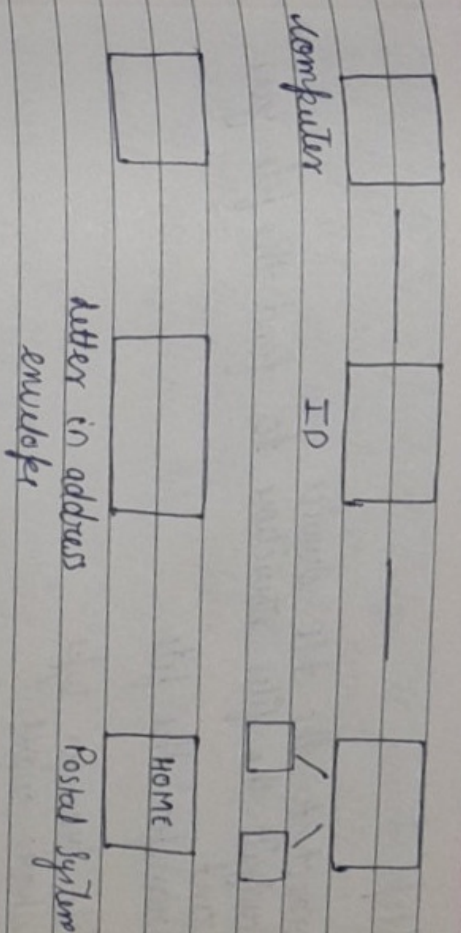 computer
ID
HOME
Letter in address
envelope
Postal System